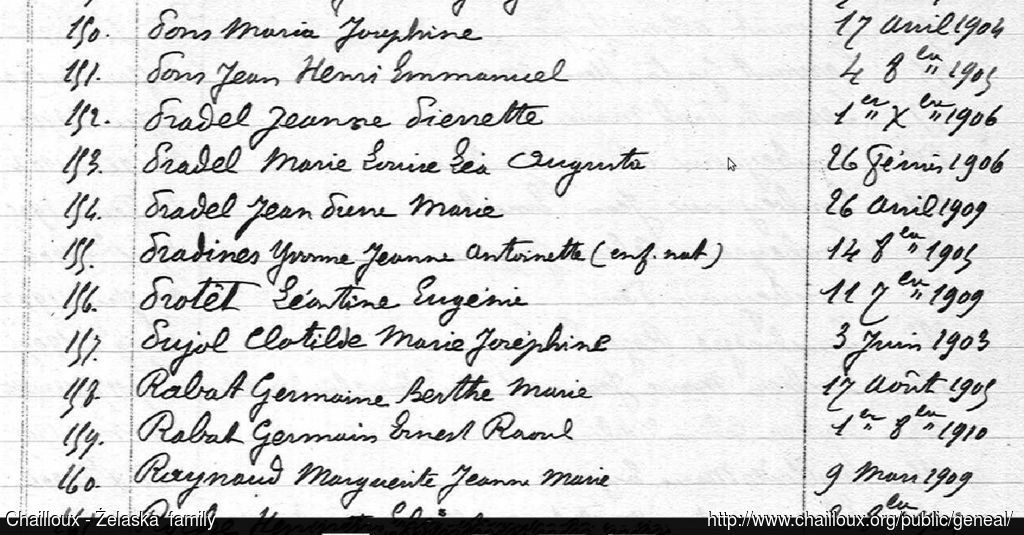 150. Pons Maria Josephine 17 Avril 1904
151. Pons Jean Henri Emmanuel 4 8bre 1905
152. Pradel Jeanne Pierrette 1er X bre 1906
153. Pradel Marie Louise Léa Augusta 26 Février 1906
154. Pradel Jean Pierre Marie 26 Avril 1909
155. Pradines Yvonne Jeanne Antoinette (enf. nat) 14 8bre 1905
156. Protêt Léontine Eugénie 11 7bre 1909
157. Pujol Clotilde Marie Joséphine 3 Juin 1903
158. Rabat Germaine Berthe Marie 17 Août 1905
159. Rabat Germain Ernest Raoul 1er 8bre 1910
160. Raynaud Marguerite Jeanne Marie 9 Mars 1909
Chailloux - Żelaska family http://www.chailloux.org/public/geneal/